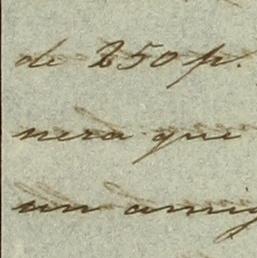 de 250 p.
nera que
un amig